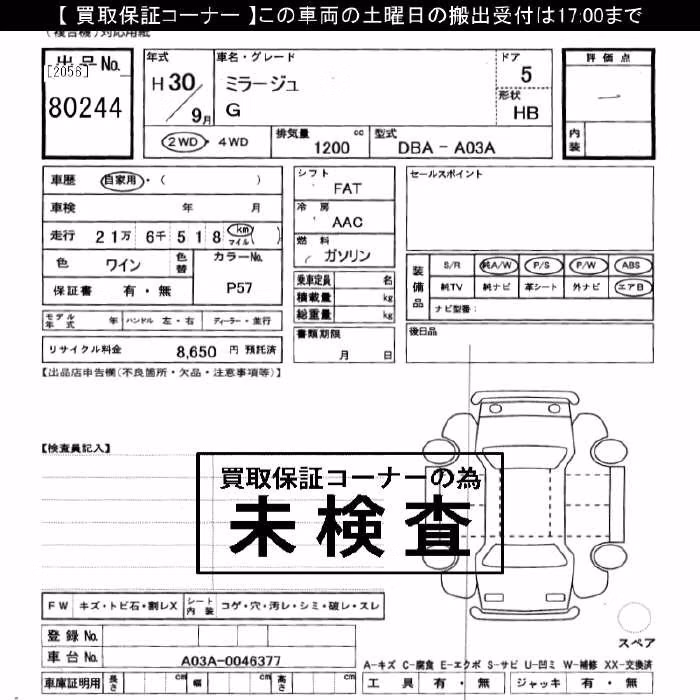 【 買取保証コーナー 】この車両の土曜日の搬出受付は17:00まで
(複合機)対応用紙
出品No.
[2056]
80244
年式
H 30
9月
車名・グレード
ミラージュ
G
ドア
5
形状
HB
評価点
―
内装
2WD・4WD
排気量 cc
1200
型式
DBA - A03A
車歴 自家用・( )
車検 年 月
走行 21万 6千 5 1 8 km マイル( )
色 ワイン
色替
カラーNo.
P57
保証書 有・無
モデル年式 年
ハンドル 左・右
ディーラー・並行
リサイクル料金 8,650 円 預託済
シフト
FAT
冷房
AAC
燃料
ガソリン
乗車定員 名
積載量 kg
総重量 kg
書類期限
月 日
セールスポイント
装備品
S/R 純A/W P/S P/W ABS
純TV 純ナビ 革シート 外ナビ エアB
ナビ型番:
後日品
【出品店申告欄(不良箇所・欠品・注意事項等)】
【検査員記入】
買取保証コーナーの為
未検査
FW キズ・トビ石・割レX
シート内装 コゲ・穴・汚レ・シミ・破レ・スレ
登録No.
車台No. A03A-0046377
車庫証明用 長さ cm 幅 cm 高さ cm
スペア
A-キズ C-腐食 E-エクボ S-サビ U-凹ミ W-補修 XX-交換済
工具 有・無 ジャッキ 有・無